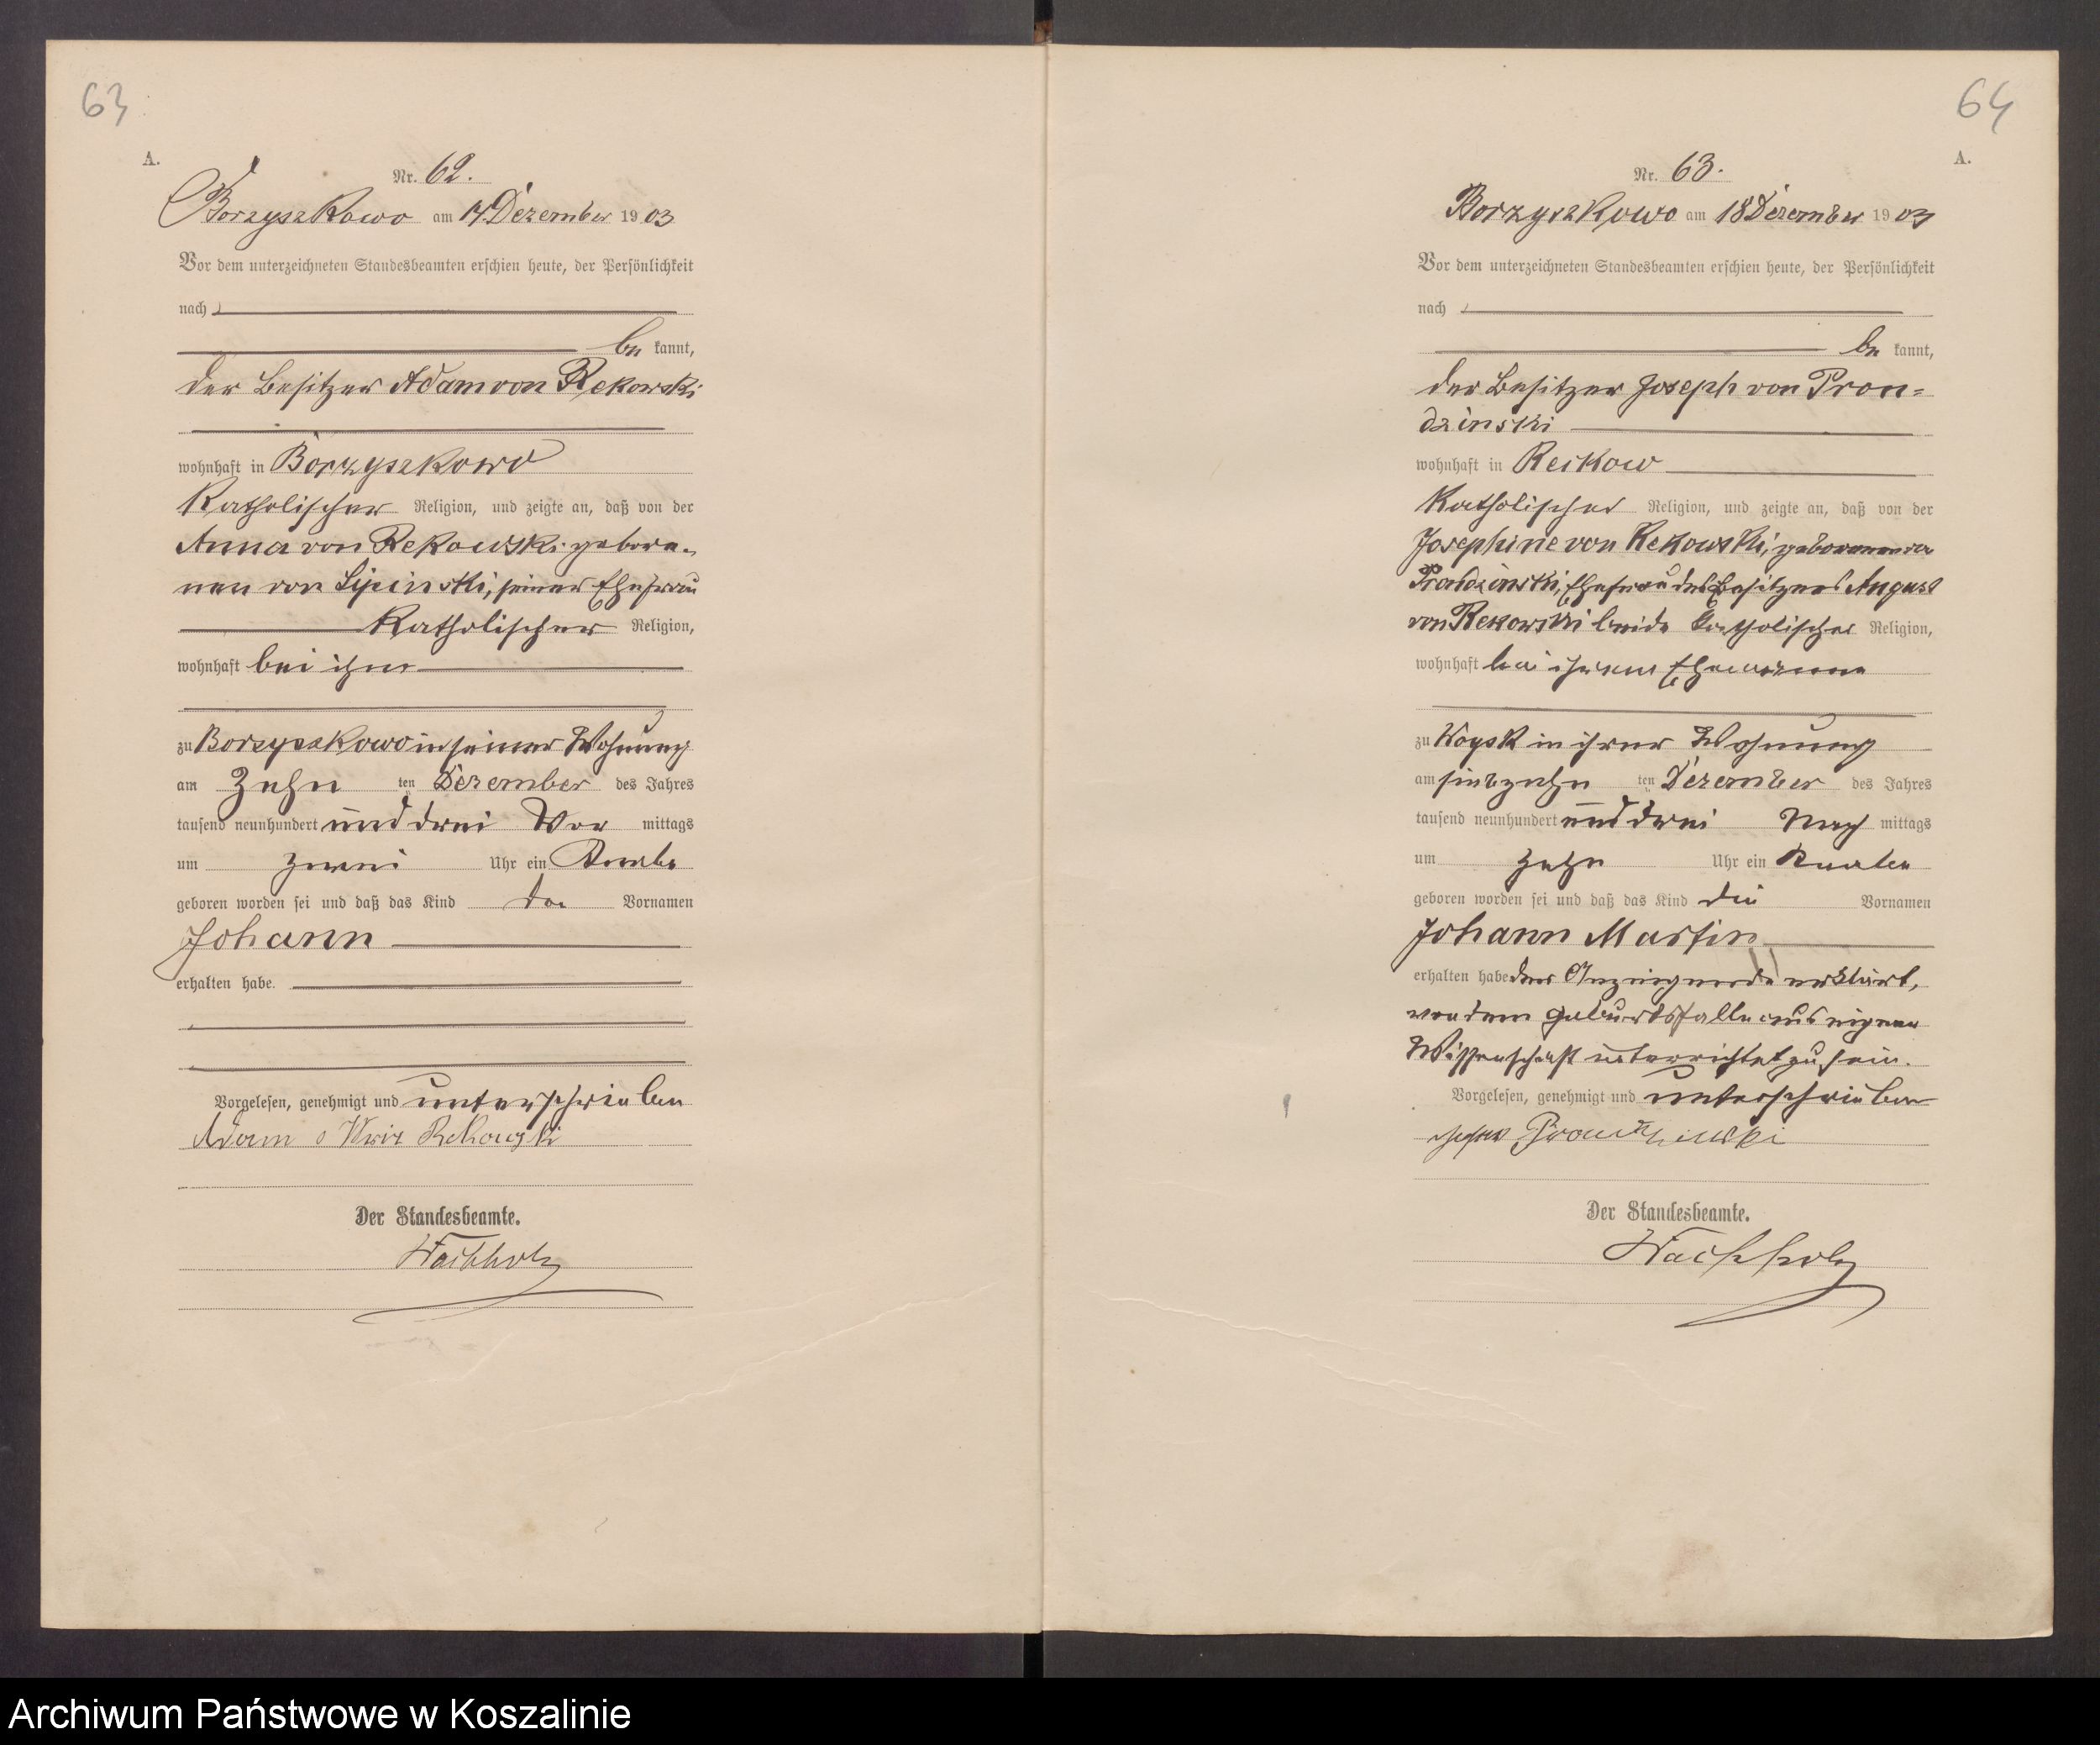 63
A.
Nr. 62.
Borzyszkowo am 14 Dezember 1903
Vor dem unterzeichneten Standesbeamten erschien heute, der Persönlichkeit
nach
be kannt,
der Besitzer Adam von Rekowski
wohnhaft in Borzyszkowo
Katholischer Religion, und zeigte an, daß von der
Anna von Rekowski gebore-
nen von Lipinski, seiner Ehefrau
Katholischer Religion,
wohnhaft bei ihm
zu Borzyszkowo in seiner Wohnung
am Zehn ten Dezember des Jahres
tausend neunhundert und drei Vor mittags
um zwei Uhr ein Knabe
geboren worden sei und daß das Kind den Vornamen
Johann
erhalten habe.
Vorgelesen, genehmigt und unterschrieben
Adam Rekowski
Der Standesbeamte.
Wachholz
64
A.
Nr. 63.
Borzyszkowo am 18 Dezember 1903
Vor dem unterzeichneten Standesbeamten erschien heute, der Persönlichkeit
nach
be kannt,
der Besitzer Joseph von Pron-
dzinski
wohnhaft in Reckow
Katholischer Religion, und zeigte an, daß von der
Josephine von Rekowski, geborenen von
Prondzinski, Ehefrau des Besitzers August
von Rekowski beide Katholischer Religion,
wohnhaft bei ihrem Ehemanne
zu Woysk in ihrer Wohnung
am siebzehn ten Dezember des Jahres
tausend neunhundert und drei Nach mittags
um zehn Uhr ein Knabe
geboren worden sei und daß das Kind die Vornamen
Johann Martin
erhalten habe der Anzeigende erklärt,
von dem Geburtsfalle aus eigener
Wissenschaft unterrichtet zu sein.
Vorgelesen, genehmigt und unterschrieben
Prondzinski
Der Standesbeamte.
Wachholz
Archiwum Państwowe w Koszalinie